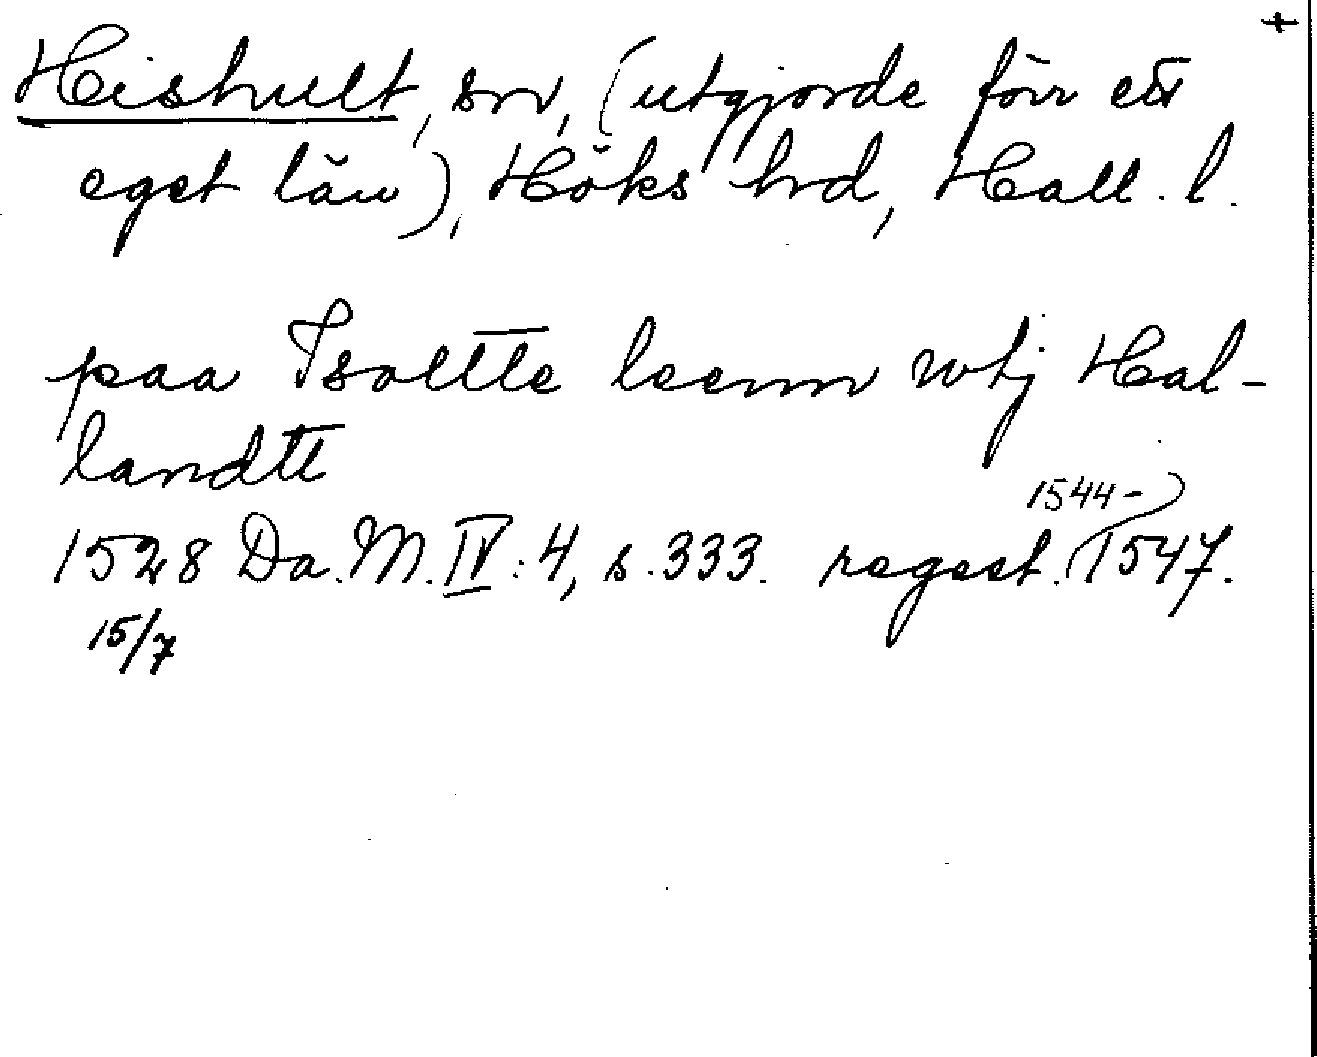 +
Hishult, sn, (utgjorde förr ett
eget län), Höks hd, Hall. l.
paa Isoltte leenn wtj Hal-
landtt
1544-
1528 Da. M. IV: 4, s. 333. regest. (1547.
15/7